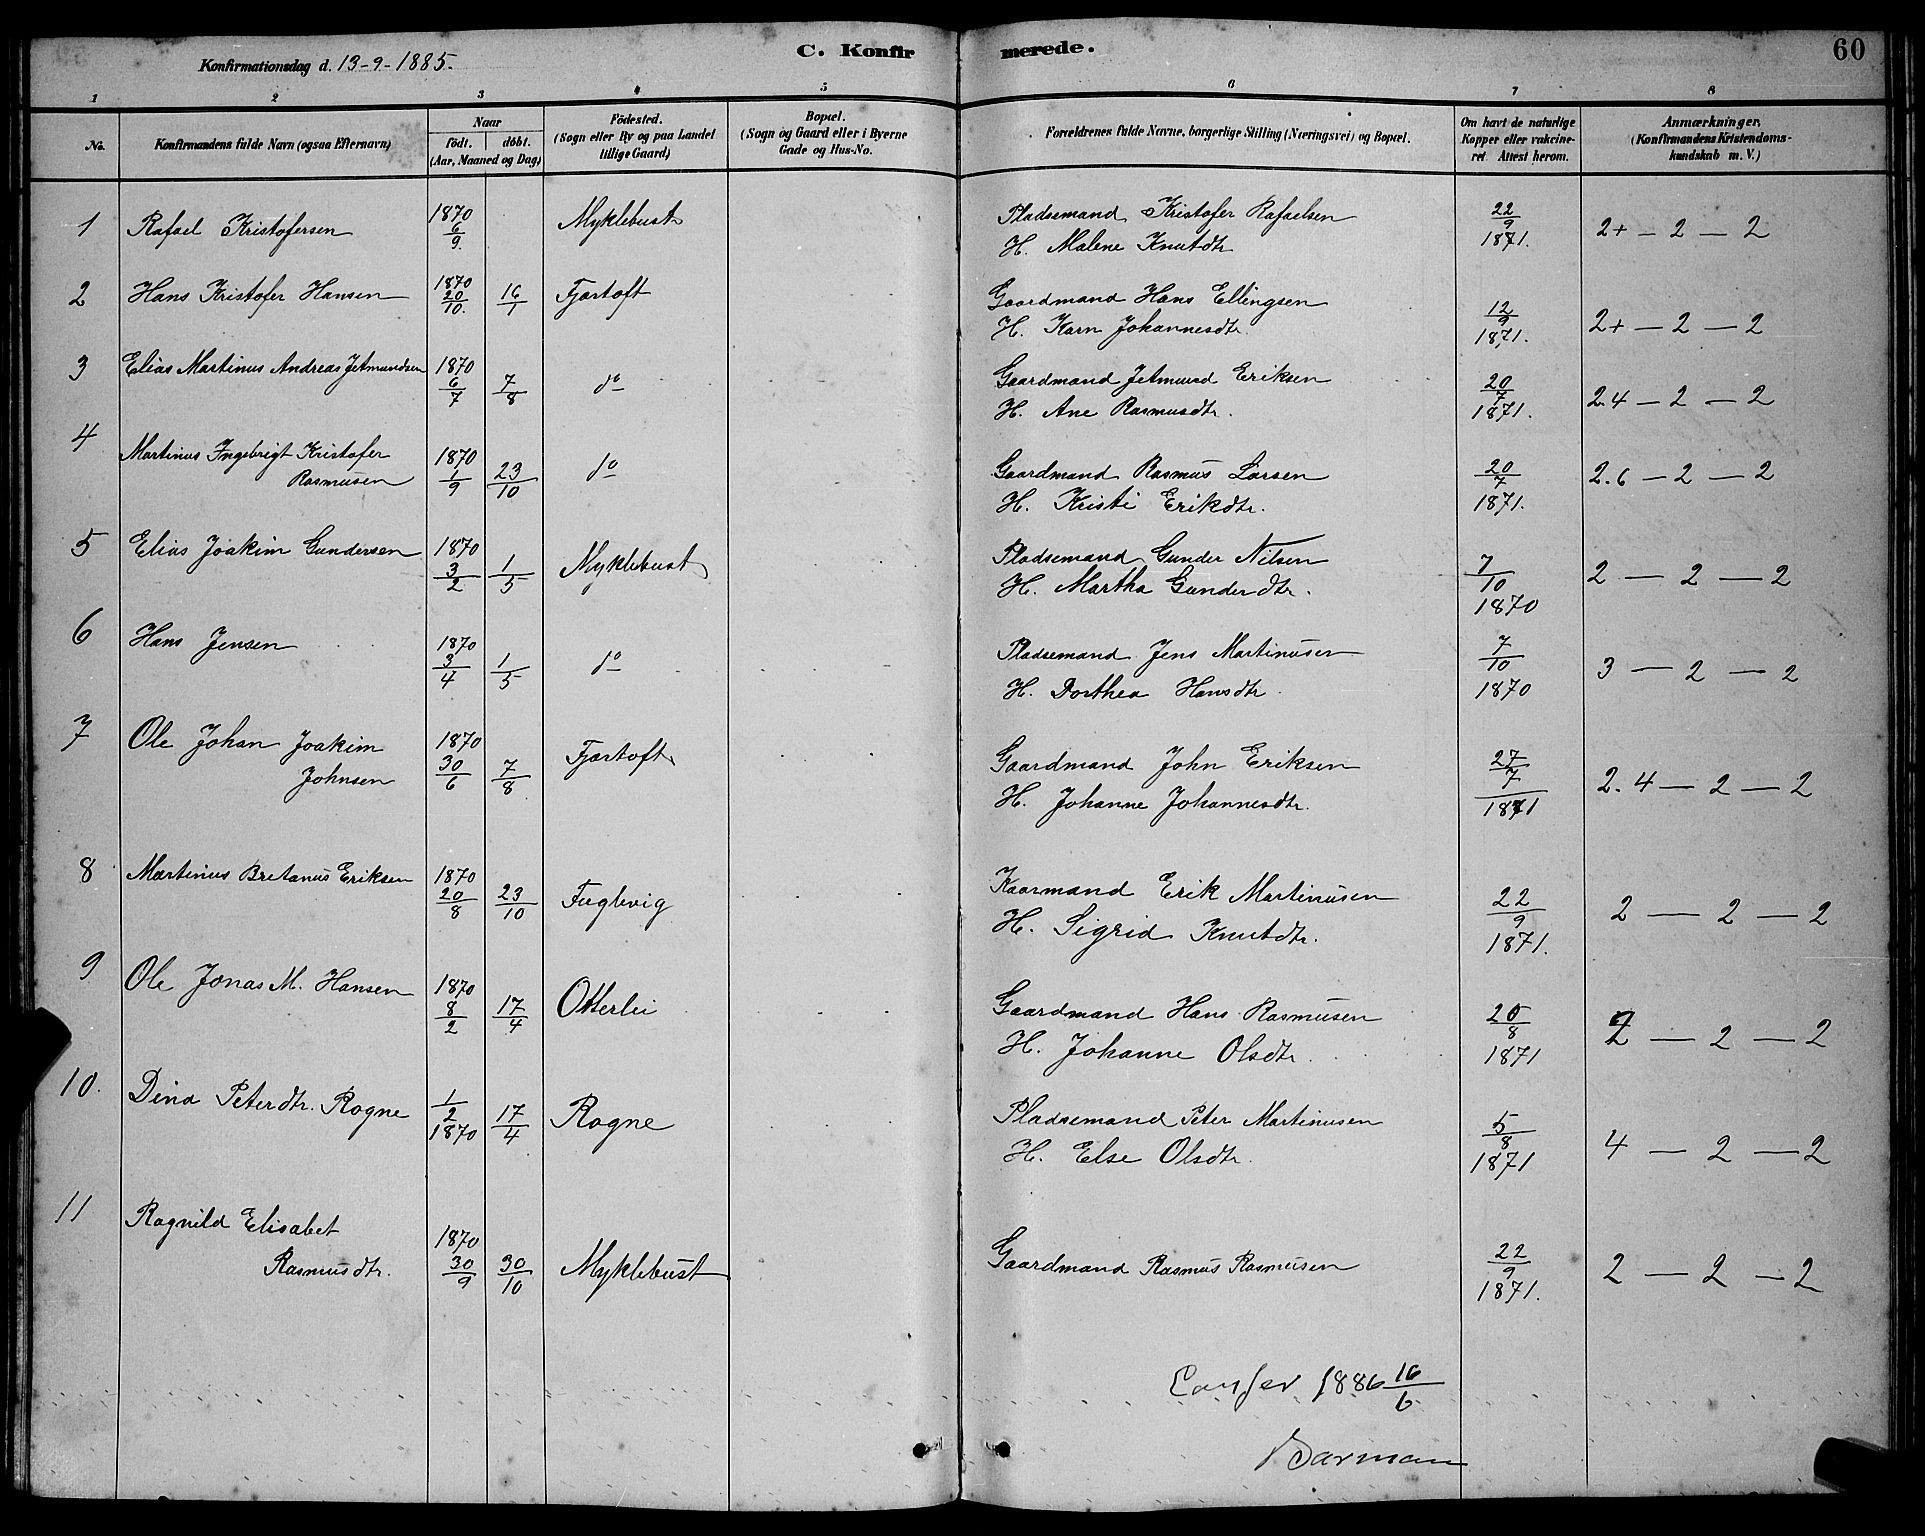 Konfirmationsdag d. 13-9-1885.
C. Konfirmerede.
60
1 2 3 4 5 6 7 8
No.
Konfirmandens fulde Navn (ogsaa Efternavn)
Naar
födt. döbt.
(Aar, Maaned og Dag)
Födested.
(Sogn eller By og paa Landet
tillige Gaard.)
Bopæl.
(Sogn og Gaard eller i Byerne
Gade og Hus-No.
Forældrenes fulde Navne, borgerlige Stilling (Næringsvei) og Bopæl.
Om havt de naturlige
Kopper eller vakcine-
ret. Attest herom.
Anmærkninger.
(Konfirmandens Kristendoms-
kundskab m. V.)
1 Rafael Kristofersen 1870 6/9. Myklebust Pladsemand Kristofer Rafaelsen 22/9 1871. 2+ - 2 - 2
H. Malene Knutdtr
2 Hans Kristofer Hansen 1870 20/10. 16/1 Fjærtoft Gaardmand Hans Ellingsen 12/9 1871. 2+ - 2 - 2
H. Karn Johannesdtr.
3 Elias Martinus Andreas Jetmundsen 1870 6/7 7/8 do Gaardmand Jetmund Eriksen 20/7 1871. 2.4 - 2 - 2
H. Ane Rasmusdtr.
4 Martinus Ingebrigt Kristofer
Rasmusen 1870 1/9 23/10 do Gaardmand Rasmus Larsen 20/7 1871. 2.6 - 2 - 2
H. Kristi Erikdtr.
5 Elias Joakim Gundersen 1870 3/2 1/5 Myklebust Pladsemand Gunder Nilsen 7/10 1870 2 - 2 - 2
H. Martha Gunderdtr.
6 Hans Jensen 1870 3/4 1/5 do Pladsemand Jens Martinusen 7/10 1870 3 - 2 - 2
H. Dorthea Hansdtr.
7 Ole Johan Joakim
Johnsen 1870 30/6 7/8 Fjærtoft Gaardmand John Eriksen 27/7 1871 2.4 - 2 - 2
H. Johanne Johannesdtr.
8 Martinus Bretanus Eriksen 1870 20/8 23/10 Fuglevig Kaarmand Erik Martinusen 22/9 1871. 2 - 2 - 2
H. Sigrid Knutdtr.
9 Ole Jonas M. Hansen 1870 8/2 17/4 Otterlei Gaardmand Hans Rasmusen 20/8 1871 2 - 2 - 2
H. Johanne Olsdtr.
10. Dina Peterdtr. Rogne 1/2 1870 17/4 Rogne Pladsemand Peter Martinusen 5/8 1871 4 - 2 - 2
H. Else Olsdtr.
11 Ragnild Elisabet
Rasmusdtr. 1870 30/9 30/10 Myklebust Gaardmand Rasmus Rasmusen 22/9 1871. 2 - 2 - 2
1886 16/6
Barman